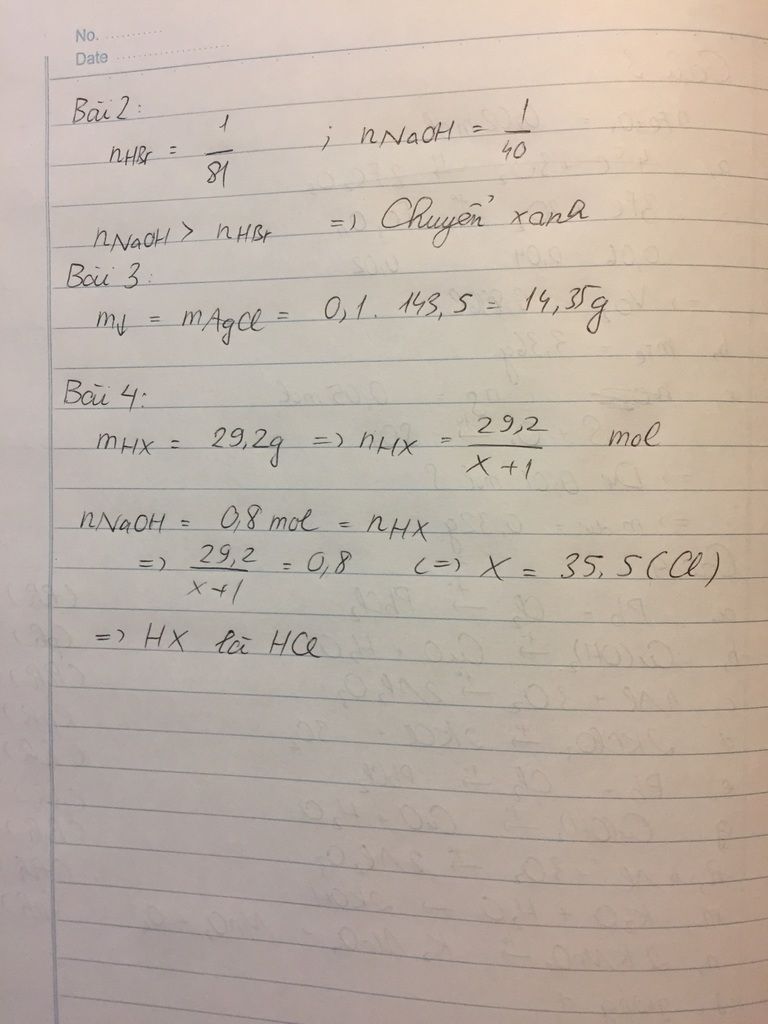 No. ............
Date ........................
Bài 2:
nHBr = 1/81 ; nNaOH = 1/40
nNaOH > nHBr => Chuyển xanh
Bài 3:
m↓ = mAgCl = 0,1. 143,5 = 14,35g
Bài 4:
mHX = 29,2g => nHX = 29,2/X+1 mol
nNaOH = 0,8 mol = nHX
=> 29,2/X+1 = 0,8 <=> X = 35,5 (Cl)
=> HX là HCl